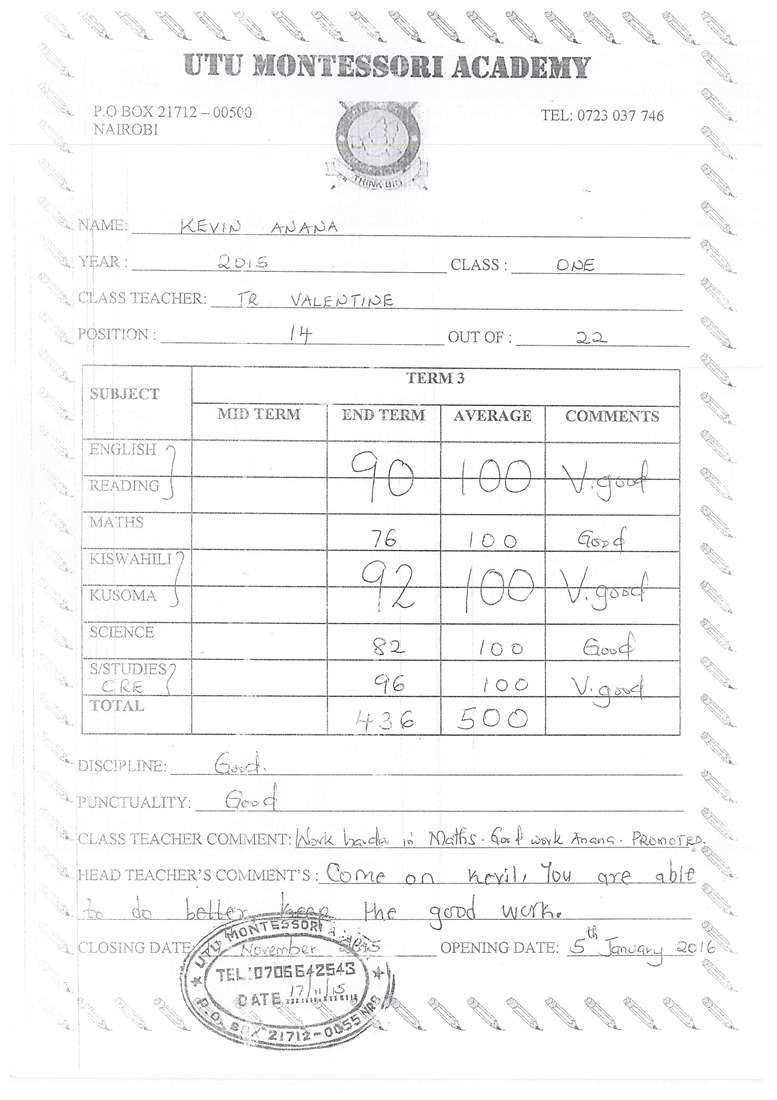 UTU MONTESSORI ACADEMY
P.O BOX 21712 – 00500 TEL: 0723 037 746
NAIROBI
THINK BIG
NAME: KEVIN ANANA
YEAR : 2015 CLASS : ONE
CLASS TEACHER: TR VALENTINE
POSITION : 14 OUT OF : 22
SUBJECT TERM 3
MID TERM END TERM AVERAGE COMMENTS
ENGLISH
READING 90 100 V.good
MATHS 76 100 Good
KISWAHILI
KUSOMA 92 100 V.good
SCIENCE 82 100 Good
S/STUDIES
CRE 96 100 V.good
TOTAL 436 500
DISCIPLINE: Good.
PUNCTUALITY: Good
CLASS TEACHER COMMENT: Work harder in Maths. Good work Anana. PROMOTED.
HEAD TEACHER'S COMMENT'S : Come on Kevil, You are able
to do better keep the good work.
CLOSING DATE: November OPENING DATE: 5th January 2016
UTU MONTESSORI
TEL:0706642543
DATE 17/11/15
P.O. BOX 21712-0055 NRB